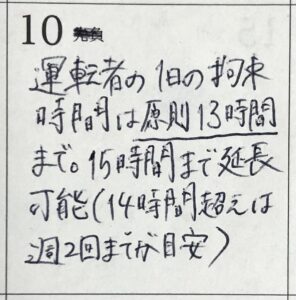 10
運転者の1日の拘束
時間は原則13時間
まで。15時間まで延長
可能(14時間超えは
週2回までが目安)